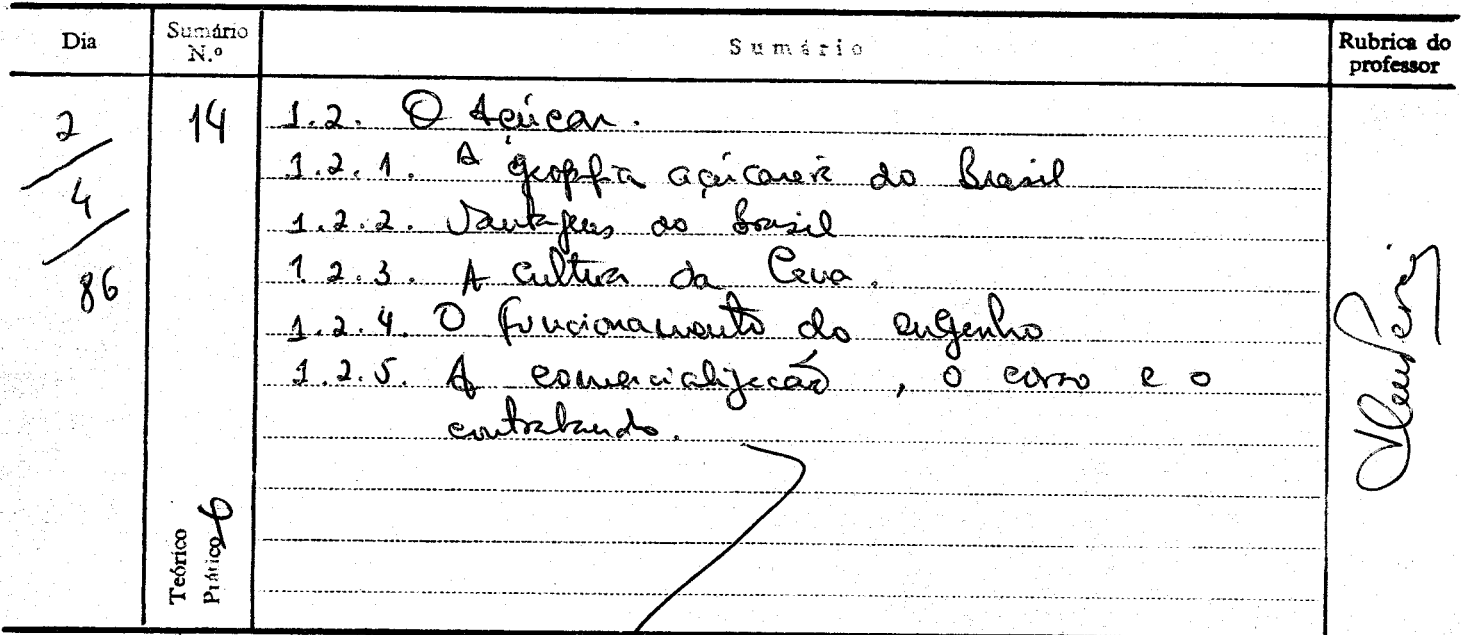 Dia
Sumário
N.º
Sumário
Rubrica do
professor
2/4/86
14
1.2. O Açúcar.
1.2.1. A geografia açucareira do Brasil
1.2.2. Vantagens do Brasil
1.2.3. A cultura da Cana.
1.2.4. O funcionamento do engenho
1.2.5. A comercialização, o corso e o
contrabando.
Teórico
Prático